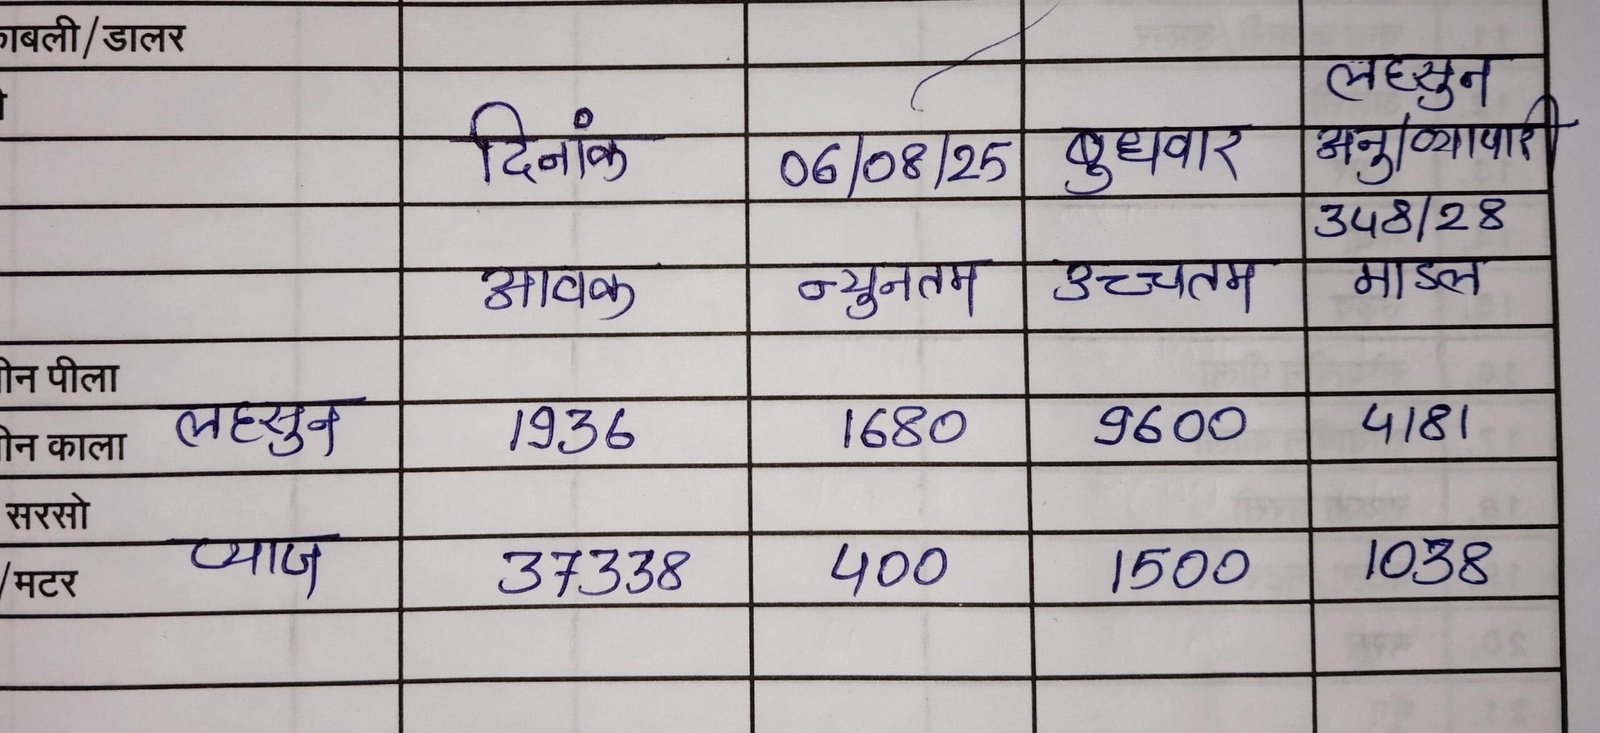 काबली/डालर
लहसुन
दिनांक 06/08/25 बुधवार अनु/व्यापारी
348/28
आवक न्युनतम उच्चतम माडल
पीला
लहसुन 1936 1680 9600 4181
काला
सरसो
प्याज 37338 400 1500 1038
/मटर